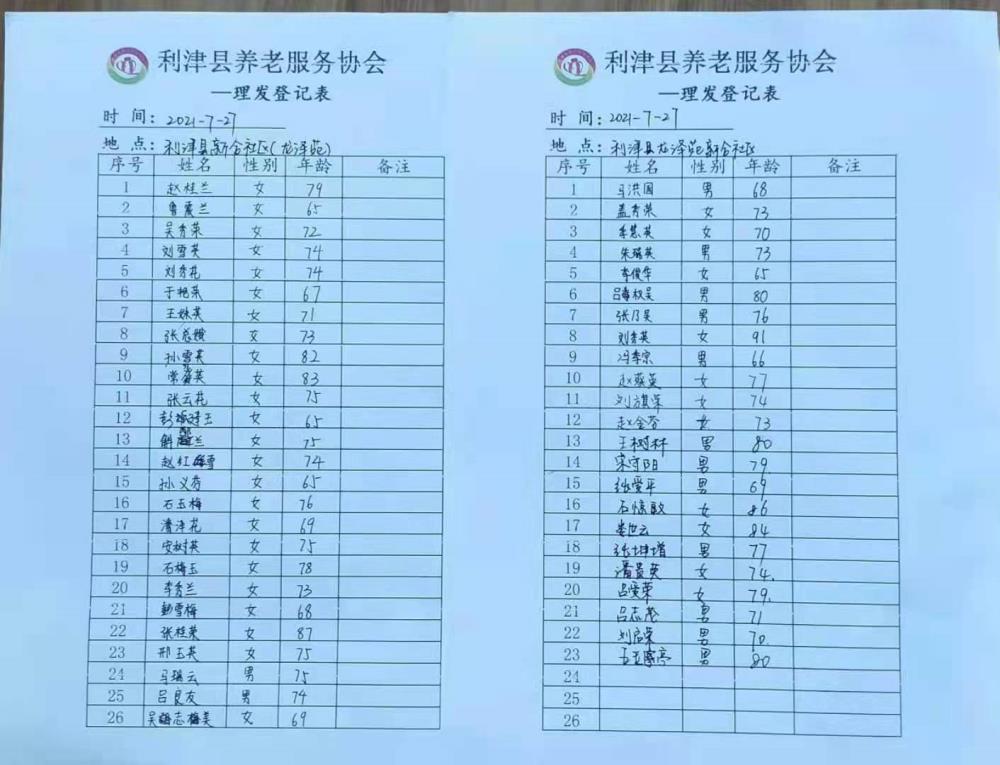 利津县养老服务协会
—理发登记表
时 间：2021-7-27
地 点：利津县新合社区(龙泽苑)
序号 姓名 性别 年龄 备注
1 赵桂兰 女 79
2 鲁爱兰 女 65
3 吴秀荣 女 72
4 刘雪英 女 74
5 刘秀花 女 74
6 于艳荣 女 67
7 王妹英 女 71
8 张 女 73
9 孙雪英 女 82
10 常英 女 83
11 张云花 女 75
12 彭玉 女 65
13 解兰 女 75
14 赵红雪 女 74
15 孙义秀 女 65
16 石玉梅 女 76
17 花 女 69
18 安树英 女 75
19 石梅玉 女 78
20 李秀兰 女 73
21 雪梅 女 68
22 张桂荣 女 87
23 邢玉英 女 75
24 马瑞云 男 75
25 吕良友 男 74
26 吴志梅美 女 69
利津县养老服务协会
—理发登记表
时 间：2021-7-27
地 点：利津县龙泽苑新合社区
序号 姓名 性别 年龄 备注
1 马洪国 男 68
2 盖秀荣 女 73
3 李慧英 女 70
4 朱瑞英 男 73
5 李俊华 女 65
6 吕权吴 男 80
7 张乃吴 男 76
8 刘秀英 女 91
9 冯李宗 男 66
10 赵燕英 女 77
11 刘旗荣 女 74
12 赵金芬 女 73
13 王树林 男 80
14 宋守阳 男 79
15 张爱平 男 69
16 石敏 女 86
17 娄世云 女 84
18 张坤增 男 77
19 潘贵英 女 74.
20 吕爱荣 女 79.
21 吕志茂 男 71
22 刘启荣 男 70.
23 亭 男 80
24
25
26